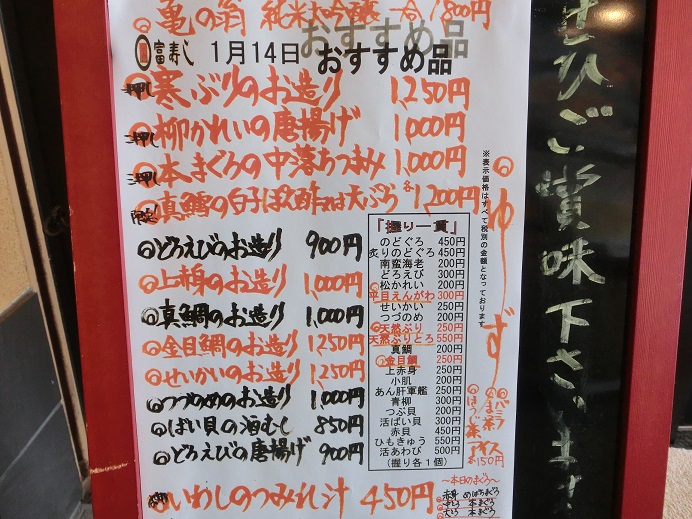 亀の翁 純米大吟醸 一合 1,800円
富寿し 1月14日 おすすめ品
寒ぶりのお造り 1,250円
柳かれいの唐揚げ 1,000円
本まぐろの中落ちつまみ 1,000円
真鱈の白子ぽん酢又は天ぷら 各1,200円
どろえびのお造り 900円
上赤身のお造り 1,000円
真鯛のお造り 1,000円
金目鯛のお造り 1,250円
せいかいのお造り 1,250円
つづのめのお造り 1,000円
ばい貝の酒むし 850円
どろえびの唐揚げ 900円
いわしのつみれ汁 450円
「握り一貫」
のどぐろ 450円
炙りのどぐろ 450円
南蛮海老 200円
どろえび 300円
松かれい 200円
平目えんがわ 300円
せいかい 250円
つづのめ 200円
天然ぶり 250円
天然ぶりとろ 550円
真鯛 200円
金目鯛 250円
上赤身 250円
小肌 200円
あん肝軍艦 250円
青柳 300円
つぶ貝 200円
活ばい貝 300円
赤貝 450円
ひもきゅう 550円
活あわび 500円
(握り各1個)
※表示価格はすべて税別の金額となっております
ゆず
バニラ
ごま
抹茶
ほうじ茶
アイス
各150円
～本日のまぐろ～
赤身 めばちまぐろ
中とろ 本まぐろ
大とろ 本まぐろ
ぜひご賞味下さいませ